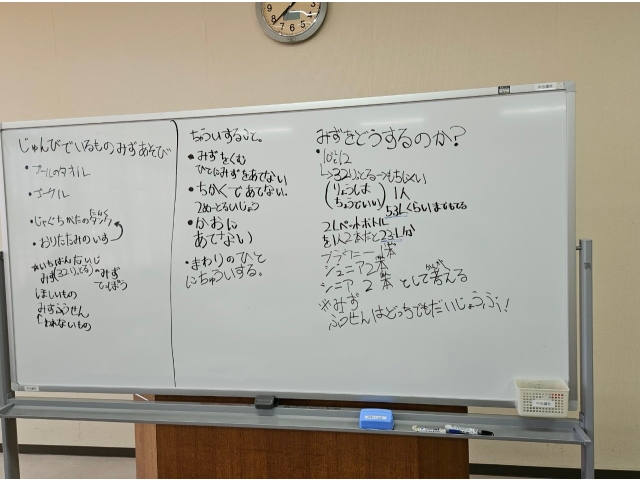 じゅんびでいるもの みずあそび
・プールのタオル
・ゴーグル
・じゃぐちがたのタンク
・おりたたみのいす
※いちばんだいじ
みず(32リッとる)・みずでっぽう
ほしいもの
みずふうせん
われないもの
ちゅういすること。
・みずをくむ
ひとにみずをあてない
・ちかくであてない。
2めーとるいじょう
・かおに
あてない
・まわりのひと
にちゅういする。
みずをどうするのか?
・10:12
↳32リッとる→もちにくい
(りょうしま ちょうでいい)1人
53Lくらいまでもてる
2Lペットボトル
を1人2本だと23Lか
ブラウニー1本
ジュニア2本
シニア2本として考える
かんが
※みず
ふうせんはどっちでもだいじょうぶ!